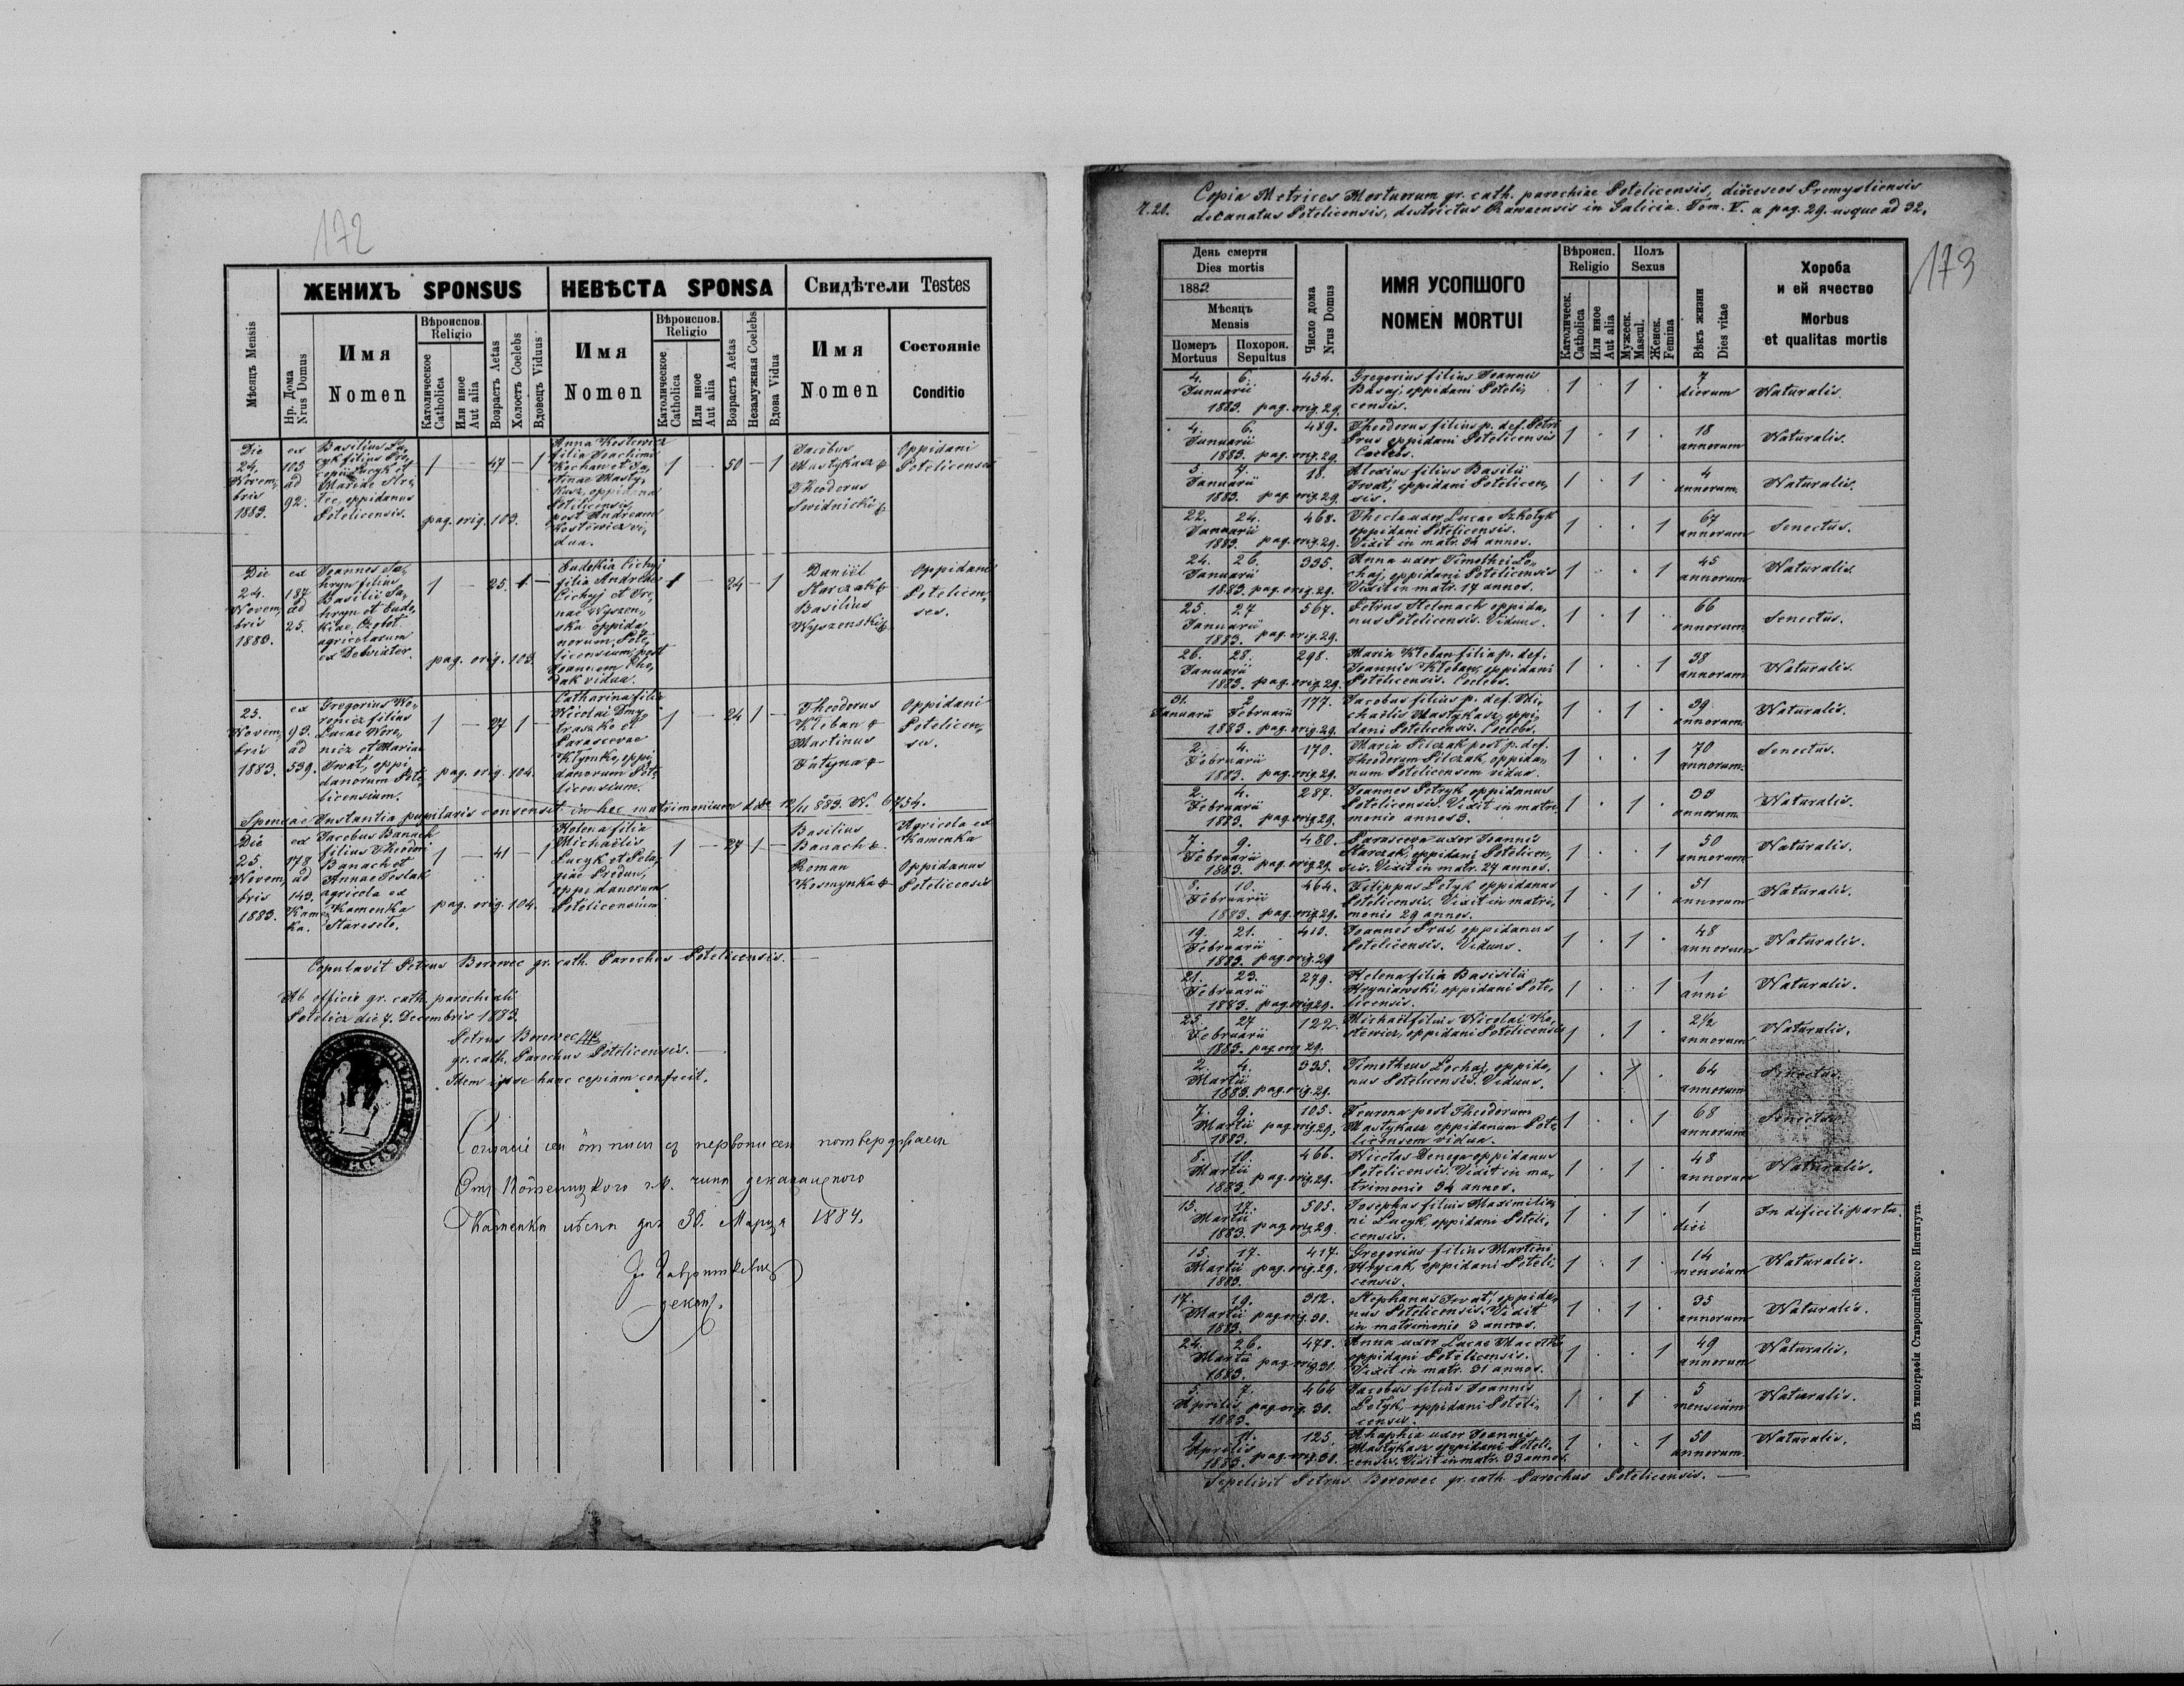 172
ЖЕНИХЪ SPONSUS
НЕВѢСТА SPONSA
Свидѣтели Testes
Мѣсяцъ Mensis
Нр. Дома
Nrus Domus
Имя
Nomen
Вѣроиспов.
Religio
Католическое
Catholica
Или иное
Aut alia
Возрастъ Aetas
Холостъ Coelebs
Вдовецъ Viduus
Имя
Nomen
Вѣроиспов.
Religio
Католическое
Catholica
Или иное
Aut alia
Возрастъ Aetas
Незамужная Coelebs
Вдова Vidua
Имя
Nomen
Состояніе
Conditio
Die
24.
Novem,
bris
1883.
ex
103
ad
92.
Basilius Lu,
cyk filius Pro,
copii Lucyk et
Mariae
oppidanus
Potelicensis.
1 — 47 — 1
pag. orig. 103.
Anna Kostewicz
filia Joachimi
Kochan et
Masty,
kasz, oppidana
Potelicensis,
post Andream
Kostewicz vi,
dua.
1 — 50 — 1
Jacobus
Mastykasz
Theodorus
Swidnicki
Oppidani
Potelicenses
Die
24.
Novem,
bris
1883.
ex
187
ad
25.
Joannes Sa,
hryn filius
Basilii Sa,
hryn et Eudo,
kiae Czobot
agricolarum
ex Dewiater.
1 — 25. 1 —
pag. orig. 103.
Eudokia Cichyj
filia Andreae
Cichyj et Ire,
nae Wyszen,
ska oppida,
norum Pote,
licensium, post
Joannem Cho,
dak vidua.
1 — 24 — 1
Daniël
Starczak
Basilius
Wyszenski
Oppidani
Potelicen,
ses.
25.
Novem,
bris
1883.
ex
93.
ad
539.
Gregorius Wo,
ronicz filius
Lucae Woro,
nicz et Mariae
Iwat, oppi,
danorum Pote,
licensium.
1 — 27 1 —
pag. orig. 104.
Catharina filia
Nicolai Dmy,
traszko et
Parascevae
Klymko, oppi,
danorum Pote,
licensium.
1 — 24 1 —
Theodorus
Kleban
Martinus
Oppidani
Potelicen,
ses.
Sponsae Instantia pupilaris consensit in hoc matrimonium dto 12/11 883. N. 6754.
Die
25.
Novem,
bris
1883.
ex
178
ad
143.
Kamen,
ka.
Jacobus Banach
filius Theodori
Banach et
Annae Teslak
agricola ex
Kamenka
Staresolo.
1 — 41 — 1
pag. orig. 104.
Helena filia
Michaëlis
Lucyk et Pela,
giae Predun,
oppidanorum
Potelicensium
1 — 27 1 —
Basilius
Banach
Roman
Kosmynka
Agricola ex
Kamenka
Oppidanus
Potelicensis
Copulavit Petrus Borowec gr. cath. Parochus Potelicensis. —
Ab officio gr. cath. parochiali
Potelicz die 7. Decembris 1883.
Petrus Borowec
gr. cath. Parochus Potelicensis. —
Idem ipse hanc copiam confecit.
30. Марця 1884.
173
7.20.
Copia Metrices Mortuorum gr. cath. parochiae Potelicensis, diöceseos Premysliensis
decanatus Potelicensis, destrictus Rawaensis in Galicia. Tom. V. a pag. 29. usque ad 32.
День смерти
Dies mortis
1882
Мѣсяцъ
Mensis
Померъ
Mortuus
Похорон.
Sepultus
Число дома
Nrus Domus
ИМЯ УСОПШОГО
NOMEN MORTUI
Вѣроисп.
Religio
Католическ.
Catholica
Или иное
Aut alia
Полъ
Sexus
Мужеск.
Mascul.
Женск.
Femina
Вѣкъ жизни
Dies vitae
Хороба
и ей ячество
Morbus
et qualitas mortis
4. 6. 454. Gregorius filius Joannis
Januarii Basaj, oppidani Poteli, 1 . 1 . 7 dierum Naturalis.
1883. pag. orig. 29. censis.
4. 6. 489. Theodorus filius p. def. Petri
Januarii Prus oppidani Potelicensis 1 . 1 . 18 annorum Naturalis.
1883. pag. orig. 29. Coelebs.
5. 7. 18. Alexius filius Basilii
Januarii Iwat, oppidani Potelicen, 1 . 1 . 4 annorum. Naturalis.
1883. pag. orig. 29. sis.
22. 24. 468. Thecla uxor Lucae Szkolyk
Januarii oppidani Potelicensis. 1 . . 1 67 annorum Senectus.
1883. pag. orig. 29. Vixit in matr. 34 annos.
24. 26. 335. Anna uxor Timothei Lo,
Januarii chaj, oppidani Potelicensis 1 . . 1 45 annorum Naturalis.
1883. pag. orig. 29. Vixit in matr. 17 annos.
25. 27 567. Petrus Stelmach oppida,
Januarii nus Potelicensis. Viduus. 1 . 1 . 66 annorum. Senectus.
1883. pag. orig. 29.
26. 28. 298. Maria Kleban filia p. def.
Januarii Joannis Kleban, oppidani 1 . . 1 38 annorum Naturalis.
1883. pag. orig. 29. Potelicensis. Coelebs.
31. 2. 177. Jacobus filius p. def. Mi,
Januarii Februarii chaëlis Mastykasz, oppi, 1 . 1 . 39 annorum. Naturalis.
1883. pag. orig. 29. dani Potelicensis. Coelebs.
2. 4. 170. Maria Pilczak post p. def.
Februarii Theodorum Pilczak, oppida, 1 . . 1 70 annorum. Senectus.
1883. pag. orig. 29. num Potelicensem vidua.
2. 4. 287. Joannes Petryk oppidanus
Februarii Potelicensis. Vixit in matri, 1 . 1 . 33 annorum. Naturalis.
1883. pag. orig. 29. monio annos 3.
7. 9. 480. Parasceva uxor Joannis
Februarii Starczak, oppidani Potelicen, 1 . . 1 50 annorum Naturalis.
1883. pag. orig. 29. sis. Vixit in matr. 27 annos.
8. 10. 464. Filippus Lotyk oppidanus
Februarii Potelicensis. Vixit in matri, 1 . 1 . 51 annorum Naturalis.
1883. pag. orig. 29. monio 29 annos.
19. 21. 410. Joannes Prus, oppidanus
Februarii Potelicensis. Viduus. 1 . 1 . 48 annorum Naturalis.
1883. pag. orig. 29
21. 23. 279. Helena filia Basisilii
Februarii Hryniawski, oppidani Pote, 1 . . 1 1 anni Naturalis.
1883. pag. orig. 29. licensis.
25 27 122. Michaël filius Nicolai Ko,
Februarii stewicz, oppidani Potelicensis 1 . 1 . 2½ annorum Naturalis.
1883. pag. orig. 29.
2. 4. 335. Timotheus Lochaj, oppida,
Martii nus Potelicensis. Viduus. 1 . 1 . 64 annorum Senectus.
1883. pag. orig. 29.
7. 9. 105. post Theodorum
Martii pag. orig. 29. Mastykasz oppidanum Pote, 1 . . 1 68 annorum Senectus.
1883. licensem vidua.
8. 10. 466. Nicetas Denega oppidanus
Martii pag. orig. 29. Potelicensis. Vixit in ma, 1 . 1 . 48 annorum Naturalis.
1883. trimonio 34 annos.
15. 17. 505. Josephus filius Maximilia,
Martii ni Lucyk, oppidani Poteli, 1 . 1 . 1 diei In dificili partu.
1883. pag. orig. 29 censis.
15. 17. 417. Gregorius filius Martini
Martii pag. orig. 29. Hrycak, oppidani Poteli, 1 . 1 . 14 mensium Naturalis.
1883. censis.
17. 19. 312. Stephanus Iwat, oppida,
Martii pag. orig. 30. nus Potelicensis. Vixit 1 . 1 . 35 annorum Naturalis.
1883. in matrimonio 3 annos.
24. 26. 478. Anna uxor Lucae
Martii pag. orig. 30. oppidani Potelicensis. 1 . . 1 49 annorum Naturalis.
1883. Vixit in matr. 31 annos.
5. 7. 464 Jacobus filius Joannis
Aprilis pag. orig. 30. Lotyk, oppidani Poteli, 1 . 1 . 5 mensium Naturalis.
1883. censis.
9. 11. 125. Ahaphia uxor Joannis
Aprilis Mastykasz oppidani Poteli, 1 . . 1 50 annorum Naturalis.
1883. pag. orig. 30. censis. Vixit in matr. 33 annos.
Sepelivit Petrus Borowec gr. cath. Parochus Potelicensis. —
Изъ типографіи Ставропигійского Института.